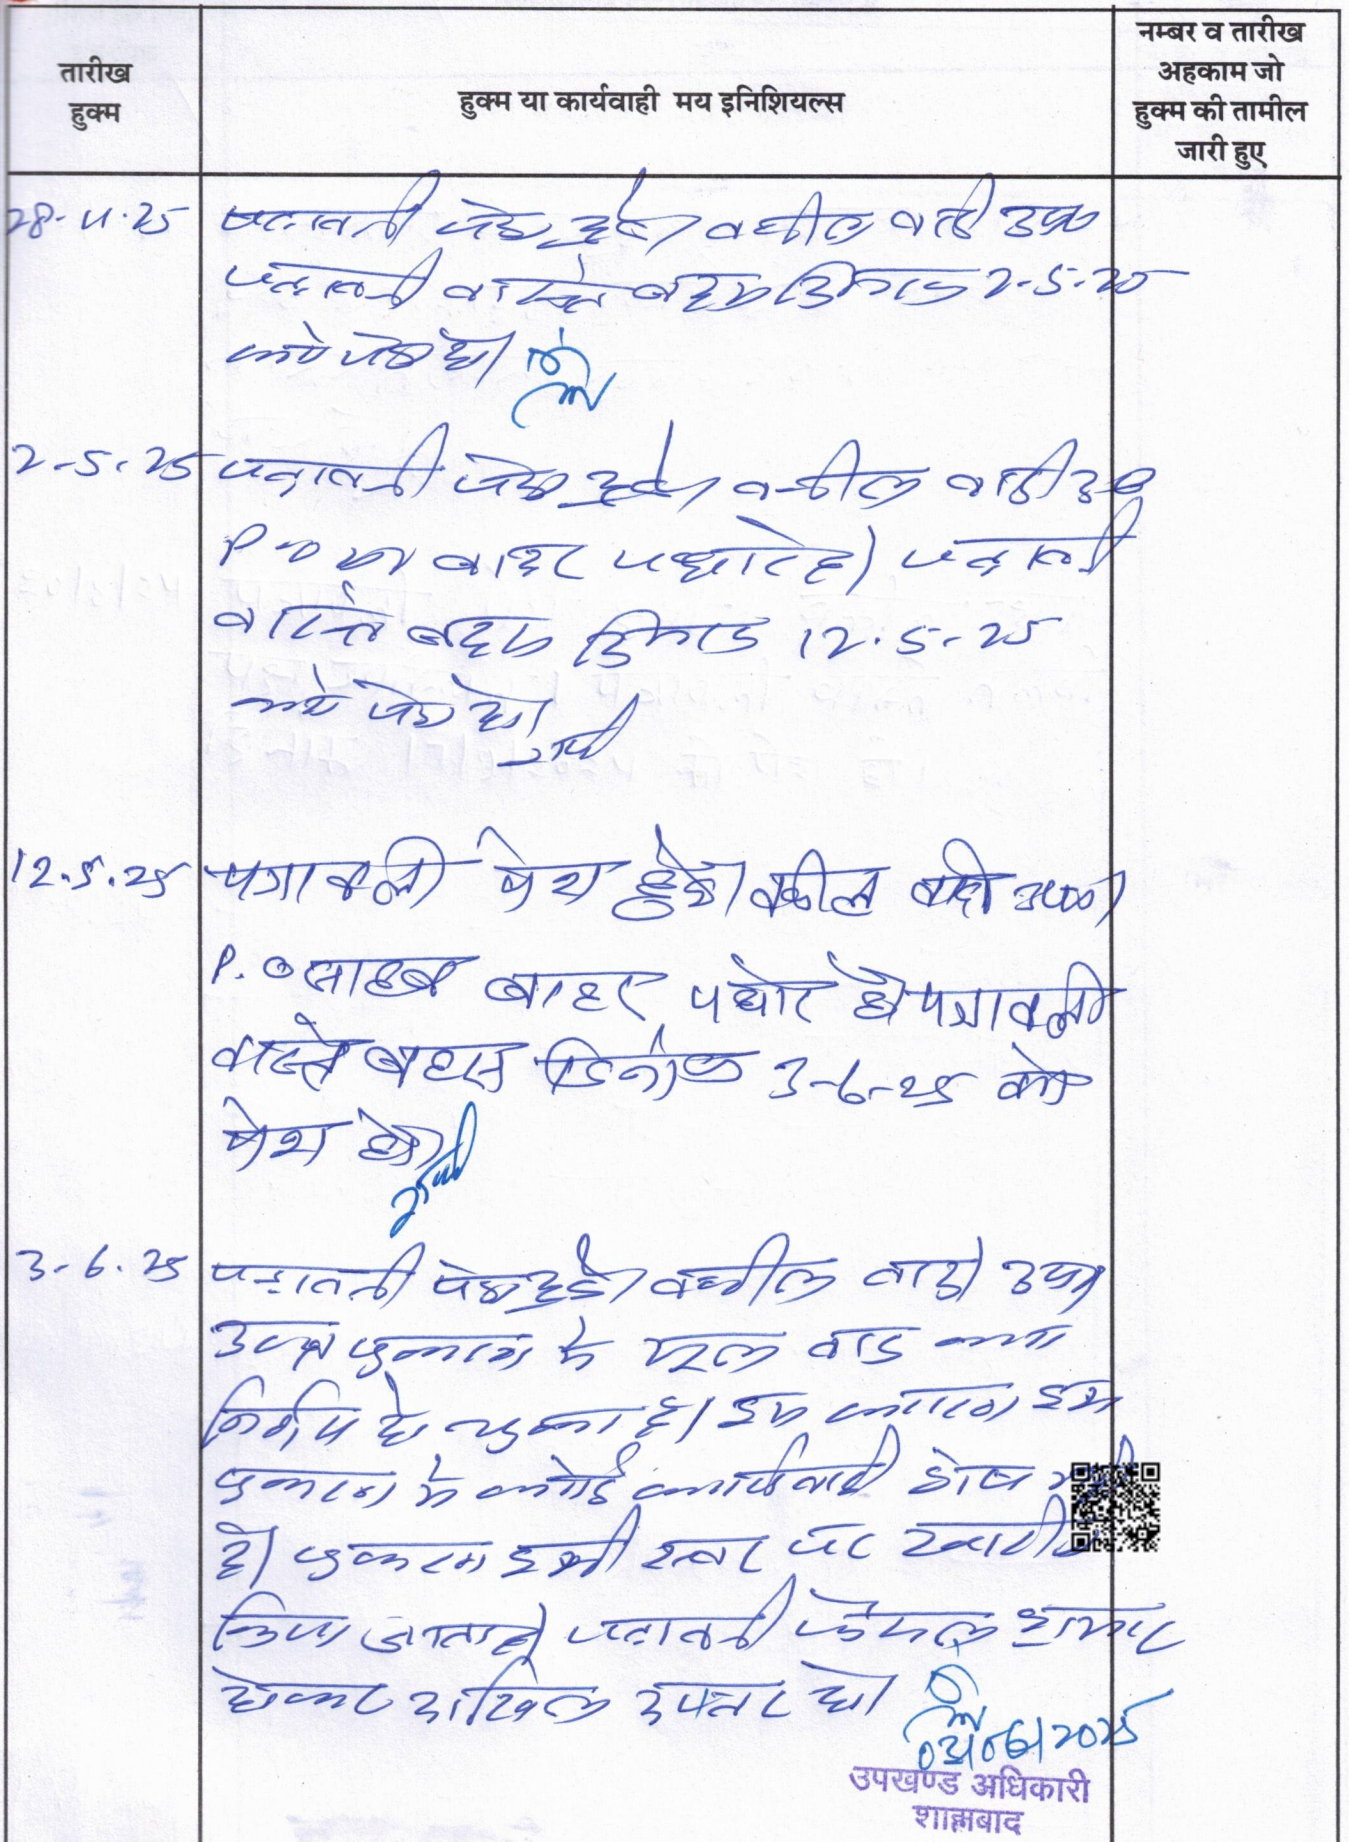 तारीख
हुक्म
हुक्म या कार्यवाही मय इनिशियल्स
नम्बर व तारीख
अहकाम जो
हुक्म की तामील
जारी हुए
28-4-25 पत्रावली पेश हुई। वकील वादी उप०
पत्रावली वास्ते बहस दिनांक 2-5-25
को पेश हो।
2-5-25 पत्रावली पेश हुई। वकील वादी उप
P.O बाहर पधारे है। पत्रावली
वास्ते बहस दिनांक 12.5.25
को पेश हो।
12.5.25 पत्रावली पेश हुई। वकील वादी उप०।
P.O साहब बाहर पधारे है पत्रावली
वास्ते बहस दिनांक 3-6-25 को
पेश हो।
3-6-25 पत्रावली पेश हुई। वकील वादी उप०
प्रकरण में मूल वाद का
निर्णय हो चुका है। इस कारण इस
प्रकरण में कोई कार्यवाही शेष नही
है। प्रकरण इसी स्तर पर खारीज
किया जाता है। पत्रावली फैसल शुमार
होकर दाखिल दफ्तर हो।
03/06/2025
उपखण्ड अधिकारी
शाहाबाद